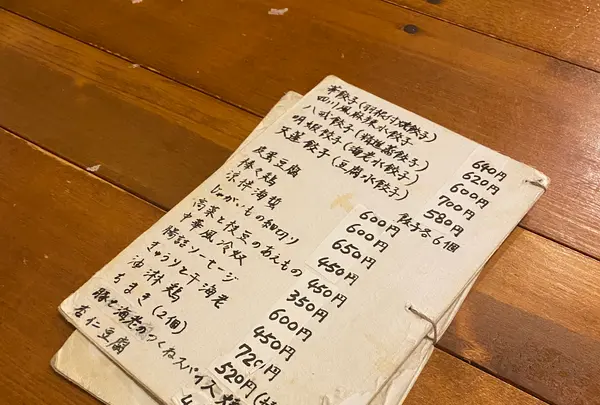 華餃子(羽根付焼餃子) 640円
四川風麻辣水餃子 620円
八戒餃子(精進蒸餃子) 600円
餃子(海老水餃子) 700円
天蓬餃子(豆腐水餃子) 580円
餃子各6個
皮蛋豆腐 600円
棒々鶏 600円
涼拌海蜇 650円
じゃがいもの細切り 450円
高菜と枝豆のあえもの 450円
中華風冷奴 350円
腸詰ソーセージ 600円
きゅうりと干海老 450円
油淋鶏 720円
ちまき(2個) 520円(
豚と海老のつくねスパイス焼
杏仁豆腐 4